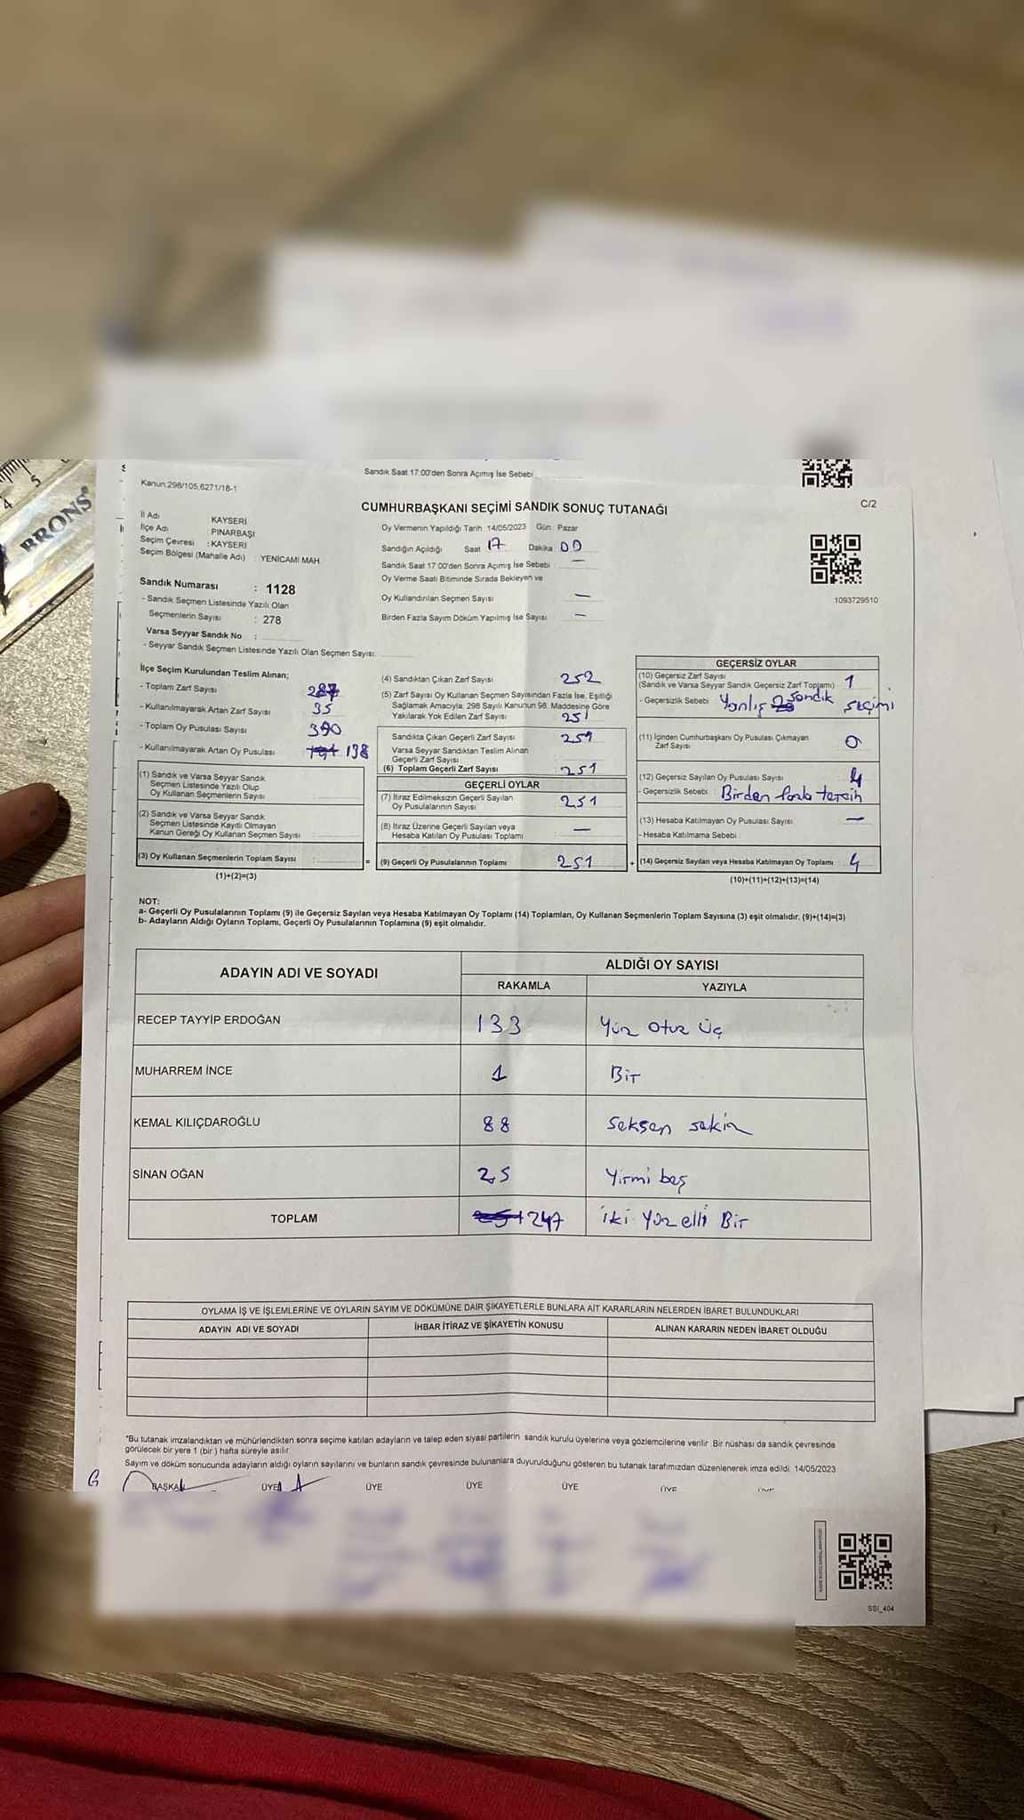 BRONS
5
4
Sandık Saat 17:00'den Sonra Açımış İse Sebebi
Kanun:298/105,6271/18-1
CUMHURBAŞKANI SEÇİMİ SANDIK SONUÇ TUTANAĞI
C/2
İl Adı KAYSERİ
İlçe Adı PINARBAŞI
Seçim Çevresi : KAYSERİ
Seçim Bölgesi (Mahalle Adı) : YENİCAMİ MAH
Oy Vermenin Yapıldığı Tarih :14/05/2023 Gün : Pazar
Sandığın Açıldığı Saat 17 Dakika 00
Sandık Saat 17:00'den Sonra Açmış İse Sebebi —
Oy Verme Saati Bitiminde Sırada Bekleyen ve
Oy Kullandırılan Seçmen Sayısı —
Birden Fazla Sayım Döküm Yapılmış İse Sayısı —
1093729510
Sandık Numarası : 1128
- Sandık Seçmen Listesinde Yazılı Olan
Seçmenlerin Sayısı : 278
Varsa Seyyar Sandık No :
- Seyyar Sandık Seçmen Listesinde Yazılı Olan Seçmen Sayısı:
İlçe Seçim Kurulundan Teslim Alınan;
- Toplam Zarf Sayısı
- Kullanılmayarak Artan Zarf Sayısı 35
- Toplam Oy Pusulası Sayısı
- Kullanılmayarak Artan Oy Pusulası 138
(1) Sandık ve Varsa Seyyar Sandık
Seçmen Listesinde Yazılı Olup
Oy Kullanan Seçmenlerin Sayısı
(2) Sandık ve Varsa Seyyar Sandık
Seçmen Listesinde Kayıtlı Olmayan
Kanun Gereği Oy Kullanan Seçmen Sayısı
(3) Oy Kullanan Seçmenlerin Toplam Sayısı
(1)+(2)=(3)
=
(4) Sandıktan Çıkan Zarf Sayısı 252
(5) Zarf Sayısı Oy Kullanan Seçmen Sayısından Fazla İse, Eşitliği
Sağlamak Amacıyla; 298 Sayılı Kanunun 98. Maddesine Göre
Yakılarak Yok Edilen Zarf Sayısı 251
Sandıkta Çıkan Geçerli Zarf Sayısı 251
Varsa Seyyar Sandıktan Teslim Alınan
Geçerli Zarf Sayısı
(6) Toplam Geçerli Zarf Sayısı 251
GEÇERLİ OYLAR
(7) İtiraz Edilmeksizin Geçerli Sayılan
Oy Pusulalarının Sayısı 251
(8) İtiraz Üzerine Geçerli Sayılan veya
Hesaba Katılan Oy Pusulası Toplamı —
(9) Geçerli Oy Pusulalarının Toplamı 251
+
GEÇERSİZ OYLAR
(10) Geçersiz Zarf Sayısı
(Sandık ve Varsa Seyyar Sandık Geçersiz Zarf Toplamı) 1
- Geçersizlik Sebebi Yanlış sandık seçimi
(11) İçinden Cumhurbaşkanı Oy Pusulası Çıkmayan
Zarf Sayısı 0
(12) Geçersiz Sayılan Oy Pusulası Sayısı 4
- Geçersizlik Sebebi : Birden fazla tercih
(13) Hesaba Katılmayan Oy Pusulası Sayısı —
- Hesaba Katılmama Sebebi :
(14) Geçersiz Sayılan veya Hesaba Katılmayan Oy Toplamı 4
(10)+(11)+(12)+(13)=(14)
NOT:
a- Geçerli Oy Pusulalarının Toplamı (9) ile Geçersiz Sayılan veya Hesaba Katılmayan Oy Toplamı (14) Toplamları, Oy Kullanan Seçmenlerin Toplam Sayısına (3) eşit olmalıdır. (9)+(14)=(3)
b- Adayların Aldığı Oyların Toplamı, Geçerli Oy Pusulalarının Toplamına (9) eşit olmalıdır.
ADAYIN ADI VE SOYADI ALDIĞI OY SAYISI
RAKAMLA YAZIYLA
RECEP TAYYİP ERDOĞAN 133 Yüz otuz üç
MUHARREM İNCE 1 Bir
KEMAL KILIÇDAROĞLU 88 Seksen sekiz
SİNAN OĞAN 25 Yirmi beş
TOPLAM 251 247 iki yüz elli Bir
OYLAMA İŞ VE İŞLEMLERİNE VE OYLARIN SAYIM VE DÖKÜMÜNE DAİR ŞİKAYETLERLE BUNLARA AİT KARARLARIN NELERDEN İBARET BULUNDUKLARI
ADAYIN ADI VE SOYADI İHBAR İTİRAZ VE ŞİKAYETİN KONUSU ALINAN KARARIN NEDEN İBARET OLDUĞU
"Bu tutanak imzalandıktan ve mühürlendikten sonra seçime katılan adayların ve talep eden siyasi partilerin sandık kurulu üyelerine veya gözlemcilerine verilir. Bir nüshası da sandık çevresinde
görülecek bir yere 1 (bir) hafta süreyle asılır.
Sayım ve döküm sonucunda adayların aldığı oyların sayılarını ve bunların sandık çevresinde bulunanlara duyurulduğunu gösteren bu tutanak tarafımızdan düzenlenerek imza edildi. 14/05/2023
BAŞKAN ÜYE ÜYE ÜYE ÜYE ÜYE
SSI_404